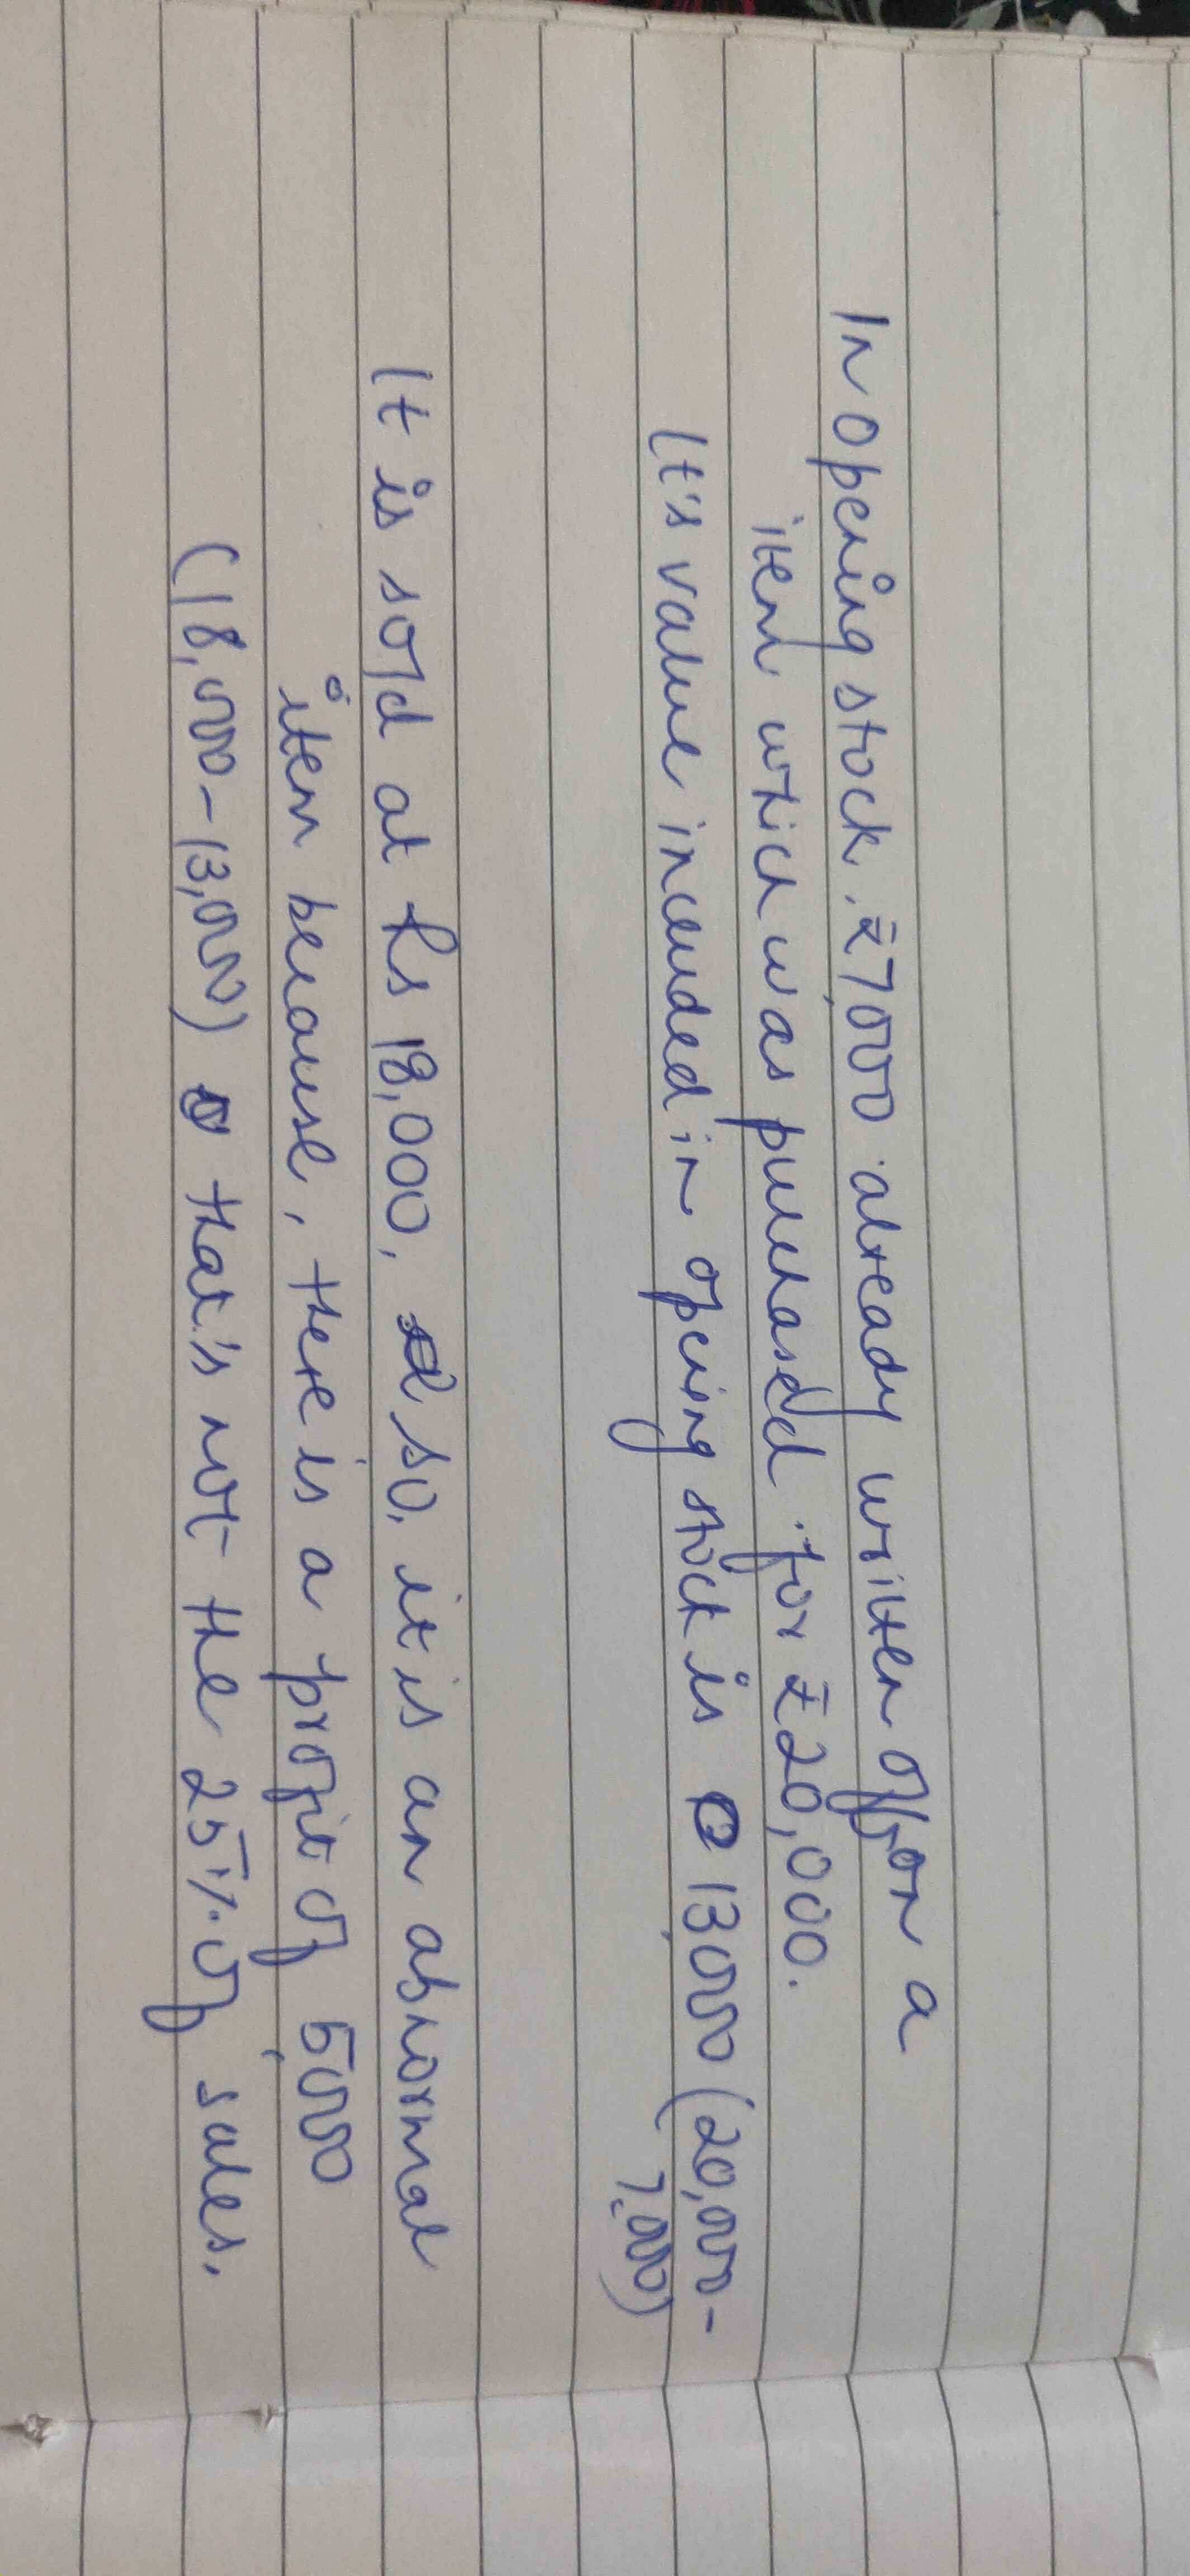 In opening stock, ₹7,000 already written off, on a
item which was purchased for ₹20,000.
It's value included in opening stock is 13,000 (20,000-
7,000)
It is sold at Rs 18,000, so, it is an abnormal
item because, there is a profit of 5,000
(18,000-13,000) that's not the 25% of sales.